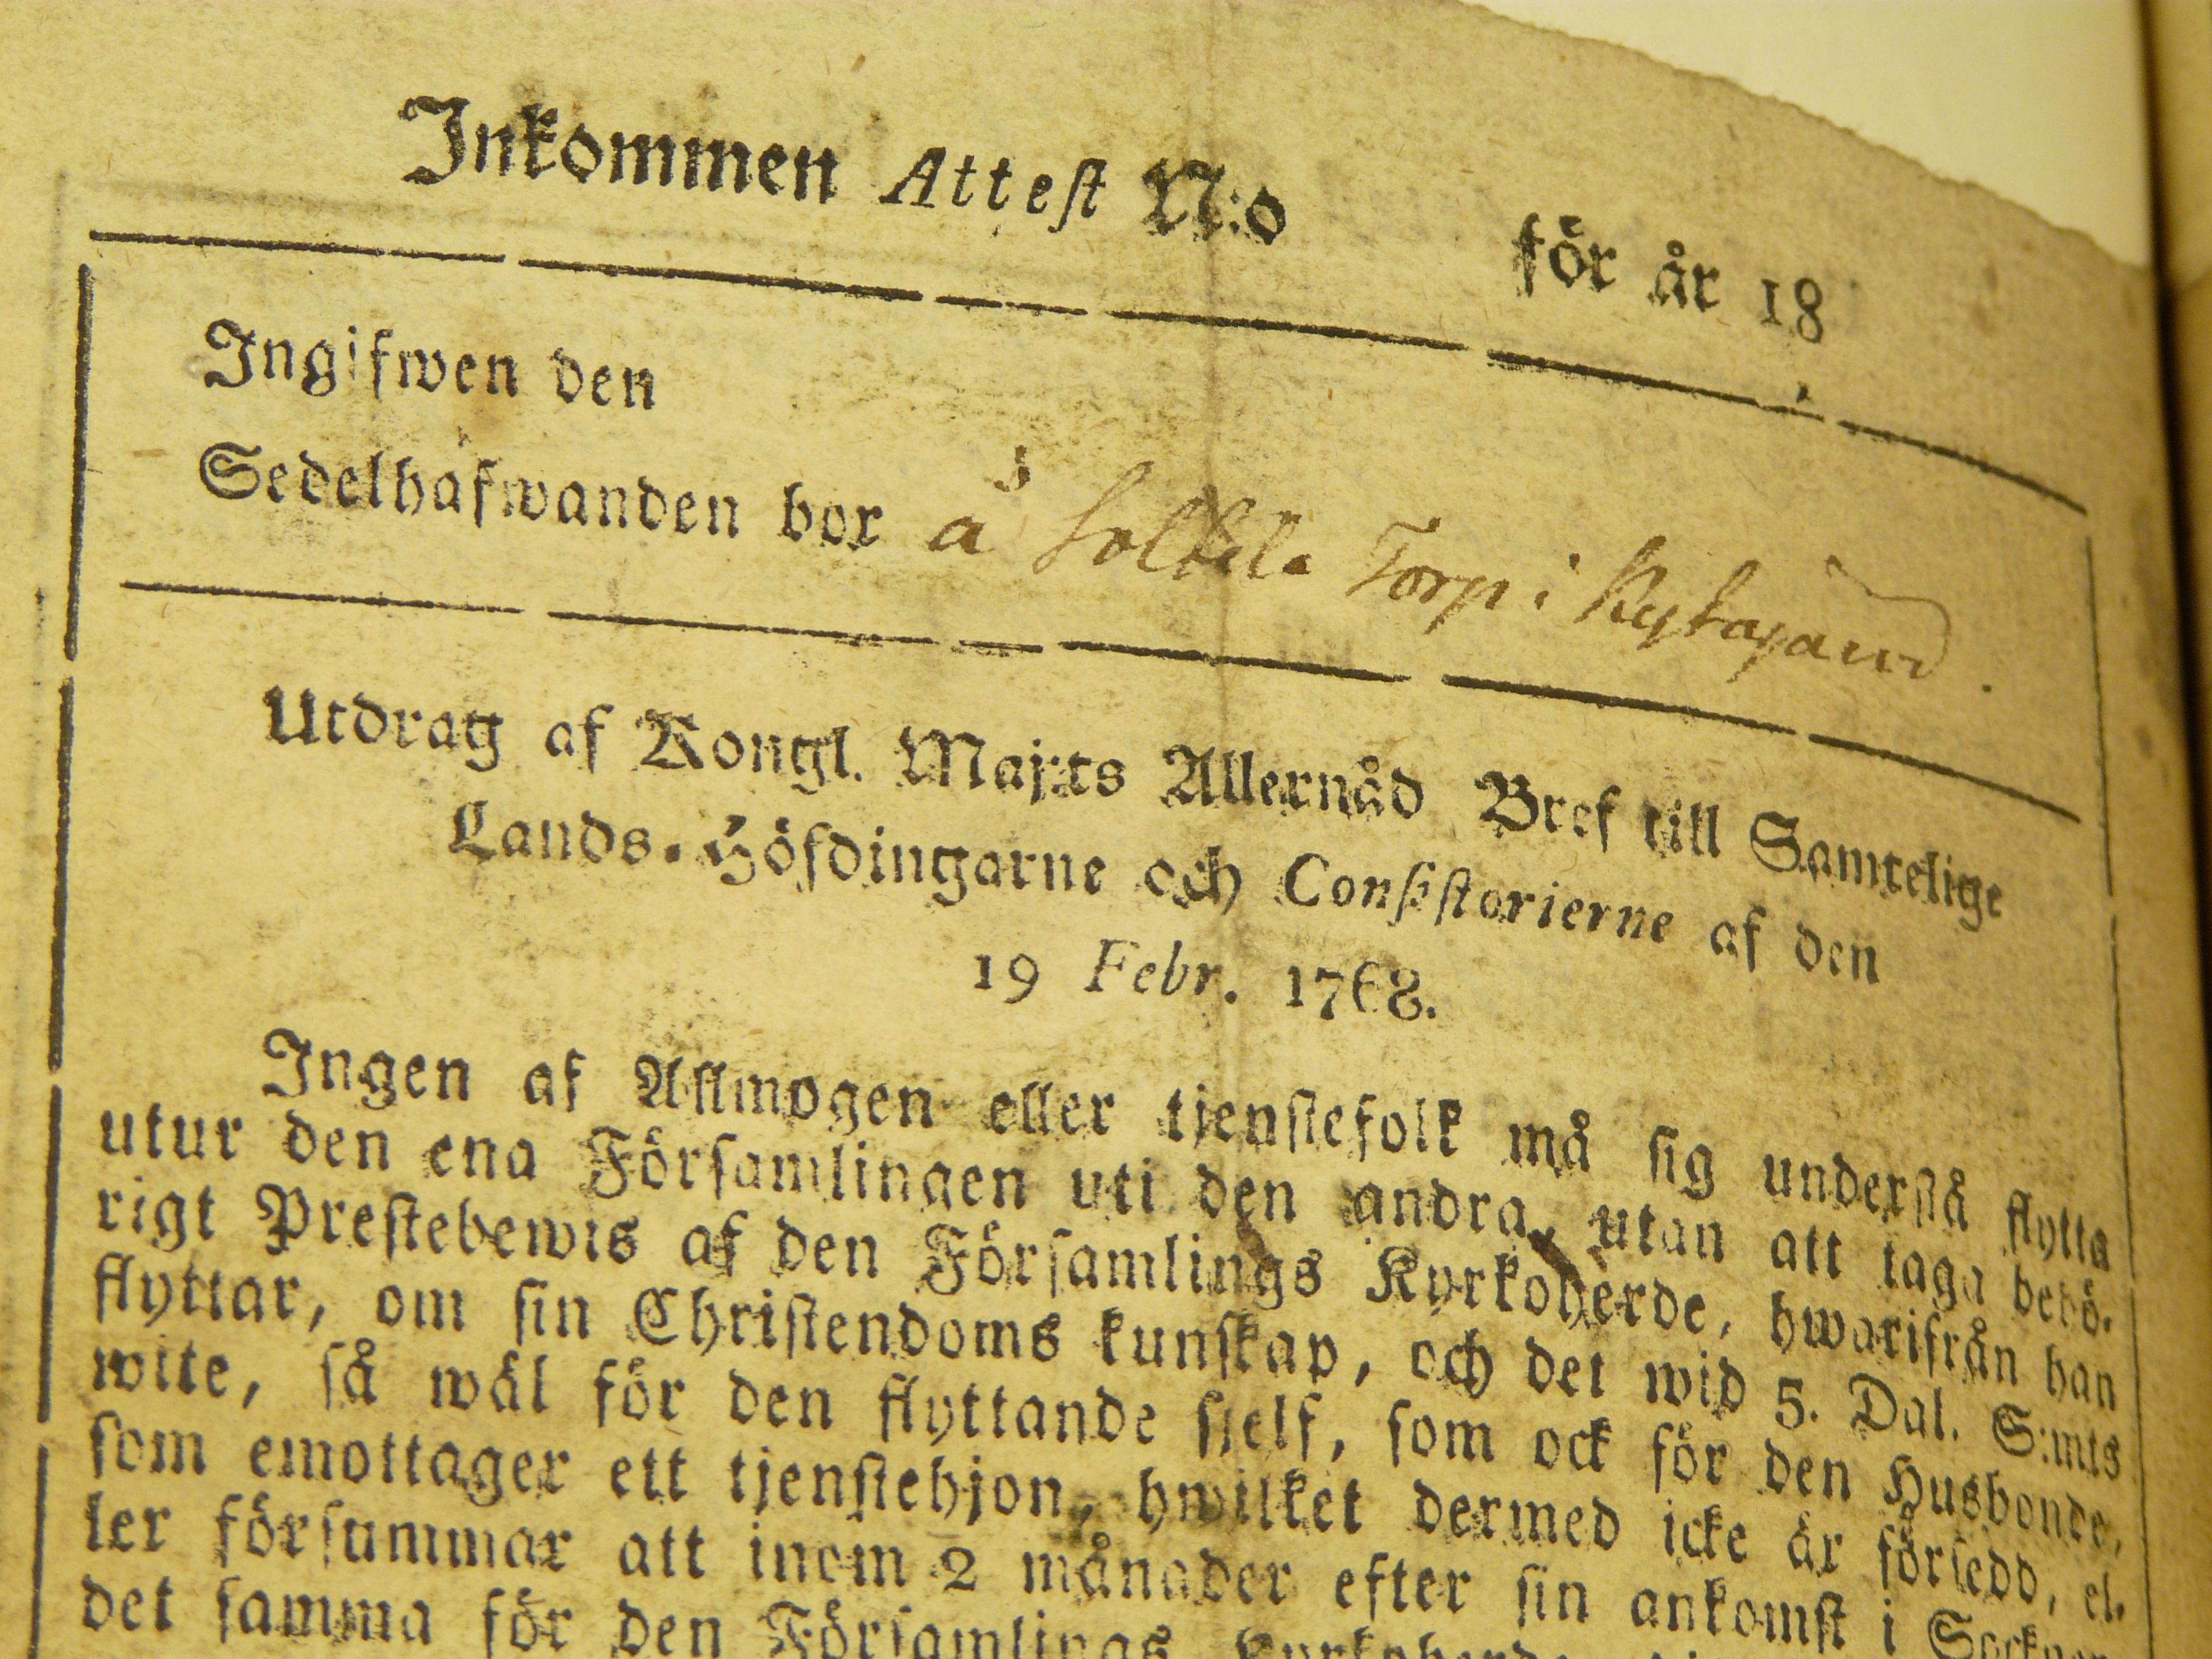 Inkommen Attest N:o för år 18
Ingifwen den
Sedelhafwanden bor å Torp i
Utdrag af Kongl. Maj:ts Allernåd Bref till Samtelige
Lands-Höfdingarne och Consistorierne af den
19 Febr. 1768.
Ingen af Allmogen eller tjenstefolk må sig understå flytta
utur den ena Församlingen uti den andra, utan att taga behö-
rigt Prestebewis af den Församlings Kyrkoherde, hwarifrån han
flyttar, om sin Christendoms kunskap, och det wid 5. Dal. S:mts
wite, så wäl för den flyttande sjelf, som ock för den Husbonde,
som emottager ett tjenstehjon, hwilket dermed icke är försedd, el-
ler försummar att inom 2 månader efter sin ankomst i
det samma för den Församlings